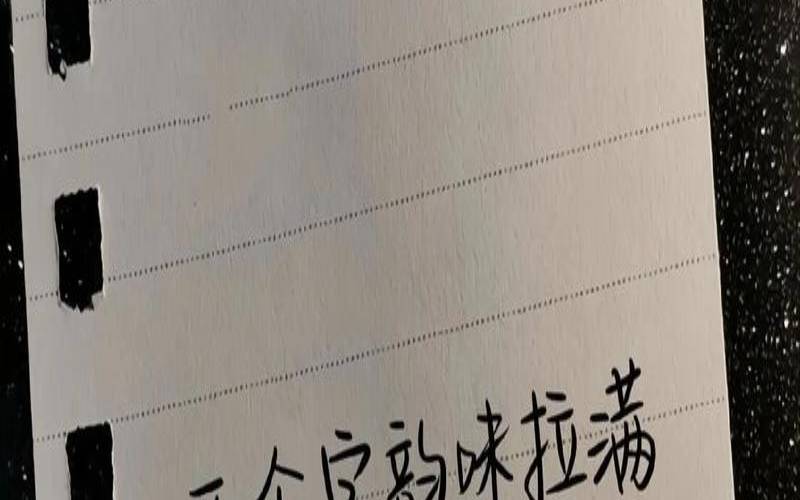 个字韵味拉满